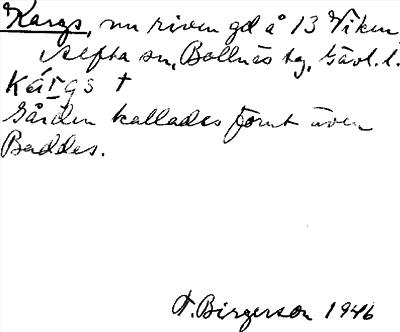 Kargs, nu riven gd å 13 Viken
Alfta sn, Bollnäs tg, Gävl. l.
Kárgs †
Gården kallades förut även
Baddes.
T. Birgerson 1946